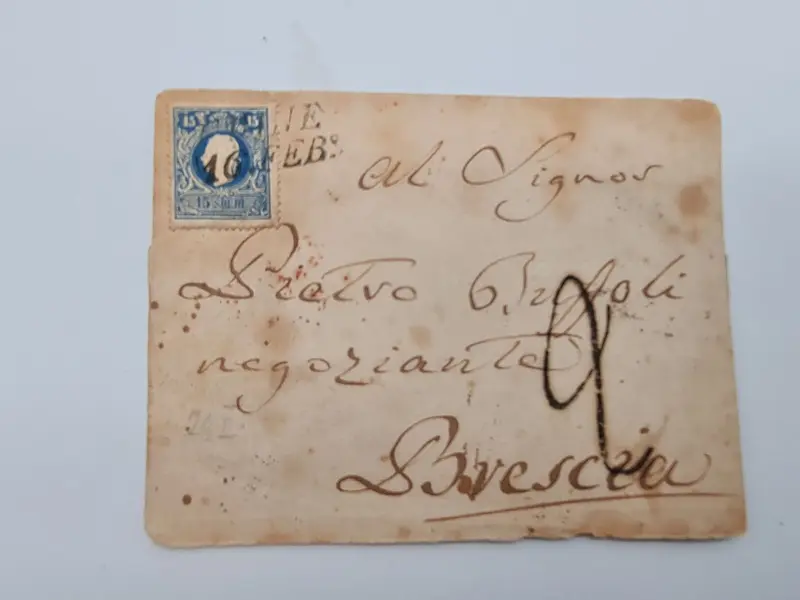 15 15
16 FEB:
15 SOLDI
Al Signor
Pietro Buffoli
negoziante
2
Brescia
24 I